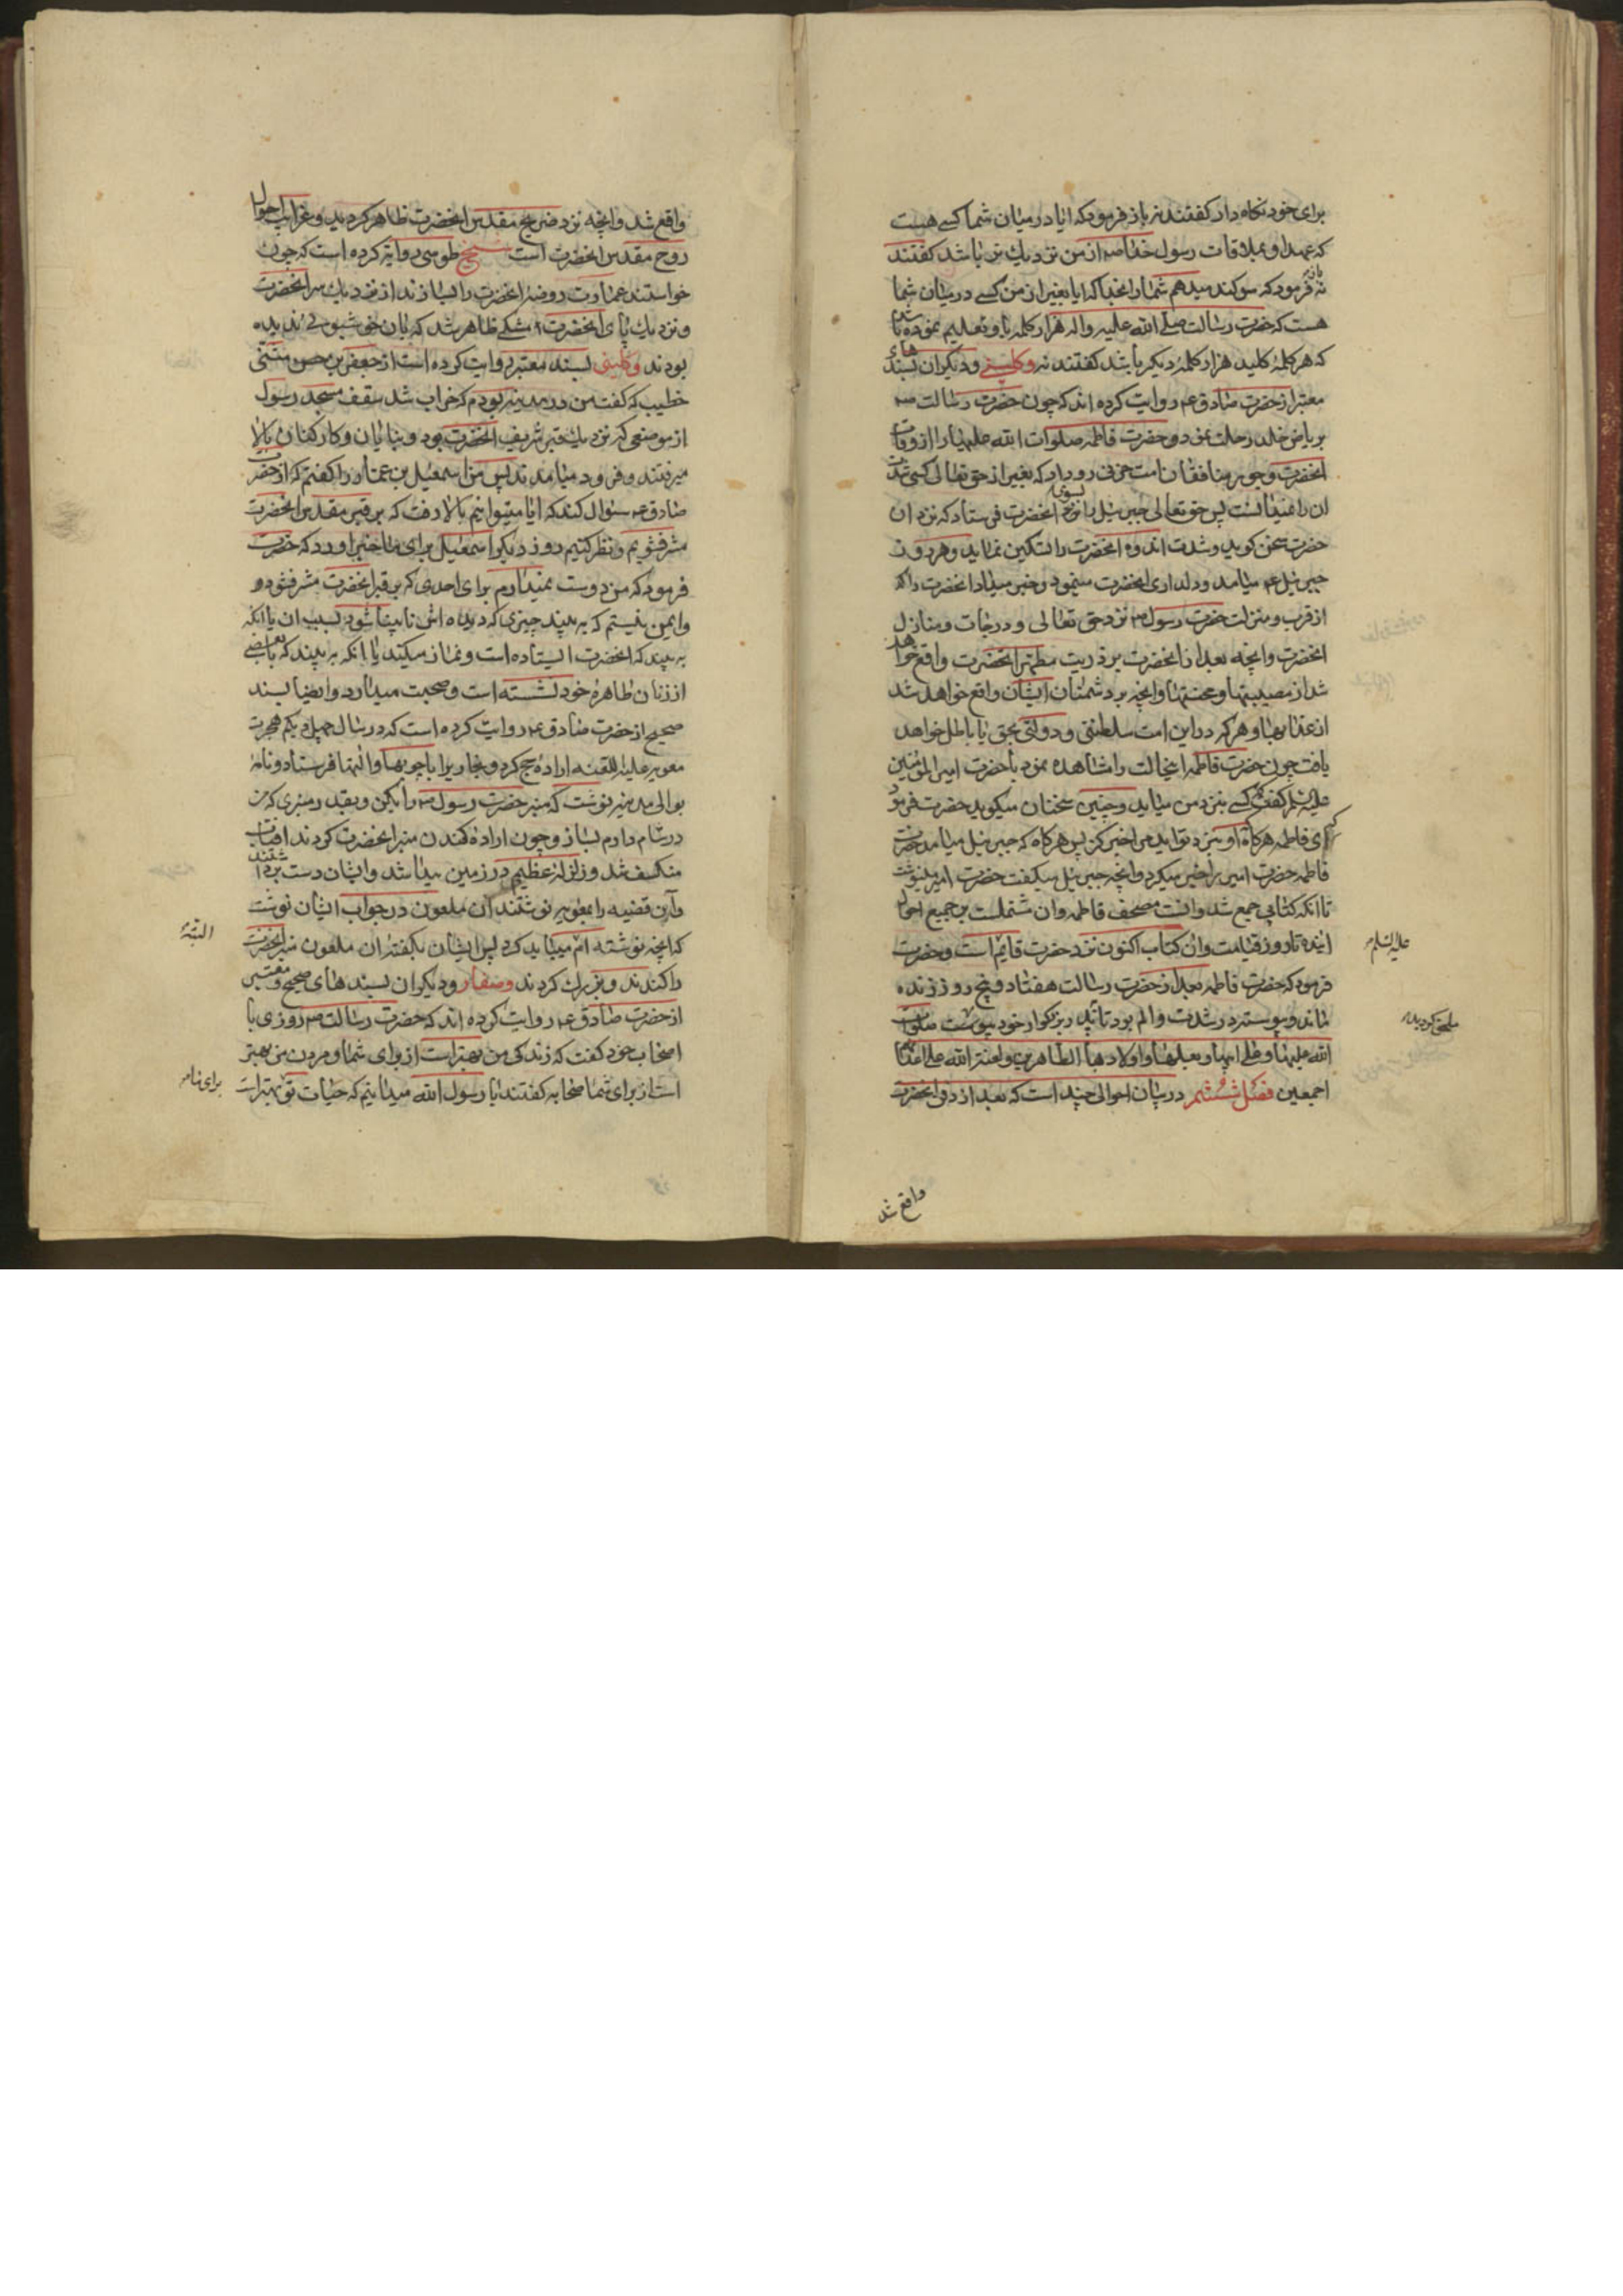 برای خود نکاه دار کفتند نه باز فرمود که ایا در میان شما کسی هست
که عهد او بملاقات رسول خدا ص از من نزدیك تر باشد کفتند
نه باز فرمود که سوکند میدهم شما را بخدا که ایا بغیر از من کسی در میان شما
هست که حضرت رسالت صلی الله علیه واله هزار کلمه باو تعلیم نموده باشد
که هر کلمه کلید هزار کلمهٔ دیکر باشد کفتند نه وکلینی ودیکران بسندهای
معتبر از حضرت صادق ع روایت کرده اند که چون حضرت رسالت ص
بریاض خلد رحلت نمود و حضرت فاطمه صلوات الله علیها را از وفات
انحضرت وجور منافقان امت حزنی رو داد که بغیر از حق تعالی کسی شدت
ان را نمیدانست پس حق تعالی جبرئیل را بسوی انحضرت فرستاد که نزد ان
حضرت سخن کوید وشدت اندوه انحضرت را تسکین نماید وهر روز
جبرئیل ع میامد و دلداری انحضرت مینمود وخبر میداد انحضرت را که
از قرب ومنزلت حضرت رسول ص نزد حق تعالی ودرجات ومنازل
انحضرت وانچه بعد از انحضرت بر ذریت مطهر انحضرت واقع خواهد
شد از مصیبتها ومحنتها وانچه بر دشمنان ایشان واقع خواهد شد
از عذابها وهر که در این امت سلطنتی ودولتی بحق یا باطل خواهد
یافت چون حضرت فاطمه اینحالت را مشاهده نمود با حضرت امیر المؤمنین
علیه السلم کفت که کسی بنزد من میاید وچنین سخنان میکوید حضرت فرمود
که ای فاطمه هرکاه او بنزد تو اید مرا خبر کن پس هرکاه که جبرئیل میامد حضرت
فاطمه حضرت امیر را خبر میکرد وانچه جبرئیل میکفت حضرت امیر مینوشت
تا انکه کتابی جمع شد وانست مصحف فاطمه وان مشتملست بر جمیع احوال
اینده تا روز قیامت وان کتاب اکنون نزد حضرت قایم است وحضرت
علیه السلم
فرمود که حضرت فاطمه بعد از حضرت رسالت هفتاد وپنج روز زنده
ماند وپیوسته در شدت والم بود تا به پدر بزرکوار خود پیوست صلوات
ملحق کردید
الله علیها وعلی ابیها وبعلها واولادها الطاهرین ولعنة الله علی اعدائهم
اجمعین فصل ششم در بیان احوالی چند است که بعد از دفن انحضرت
واقع شد
واقع شد وانچه نزد ضریح مقدس انحضرت ظاهر کردید وغرایب احوال
روح مقدس انحضرت است شیخ طوسی روایة کرده است که چون
خواستند عمارت روضهٔ انحضرت را بسازند از نزدیك سر انحضرت
ونزدیك پای انحضرت مشکی ظاهر شد که بان خوشبوئی ندیده
بودند وکلینی بسند معتبر روایت کرده است از جعفر بن مثنی
خطیب که کفت من در مدینه بودم که خراب شد سقف مسجد رسول
از موضعی که نزدیك قبر شریف انحضرت بود وبنایان وکارکنان بالا
میرفتند وفرود میامدند پس من اسمعیل بن عمار را کفتم که از حضرت
صادق ع سئوال کند که ایا میتوانیم بالا رفت که بر قبر مقدس انحضرت
مشرف شویم ونظر کنیم روز دیکر اسمعیل برای ما خبر اورد که حضرت
فرمود که من دوست نمیدارم برای احدی که بر قبر انحضرت مشرف شود و
وایمن نیستم که به بیند چیزی که دیده اش نابینا شود بسبب ان یا انکه
به بیند که انحضرت ایستاده است ونماز میکند یا انکه به بیند که با بعضی
از زنان طاهرهٔ خود نشسته است وصحبت میدارد وایضا بسند
صحیح از حضرت صادق ع روایت کرده است که در سال چهل ویکم هجرت
معویه علیه اللعنه ارادهٔ حج کرد ونجار را با چوبها والتها فرستاد ونامهٔ
بوالی مدینه نوشت که منبر حضرت رسول ص را بکن وبقدر منبری که من
در شام دارم بساز وچون ارادهٔ کندن منبر انحضرت کردند افتاب
منکسف شد وزلزلهٔ عظیم در زمین پیدا شد وایشان دست برداشتند
واین قضیه را بمعویه نوشتند ان ملعون در جواب ایشان نوشت
که انچه نوشته ام میباید کرد پس ایشان بکفتهٔ ان ملعون منبر انحضرت
البتهٔ
را کندند وبزرك کردند وصفار ودیکران بسندهای صحیح ومعتبر
از حضرت صادق ع روایت کرده اند که حضرت رسالت ص روزی با
اصحاب خود کفت که زندکی من بهتر است از برای شما ومردن من بهتر
است از برای شما صحابه کفتند یا رسول الله میدانیم که حیات تو بهتر است
برای ما